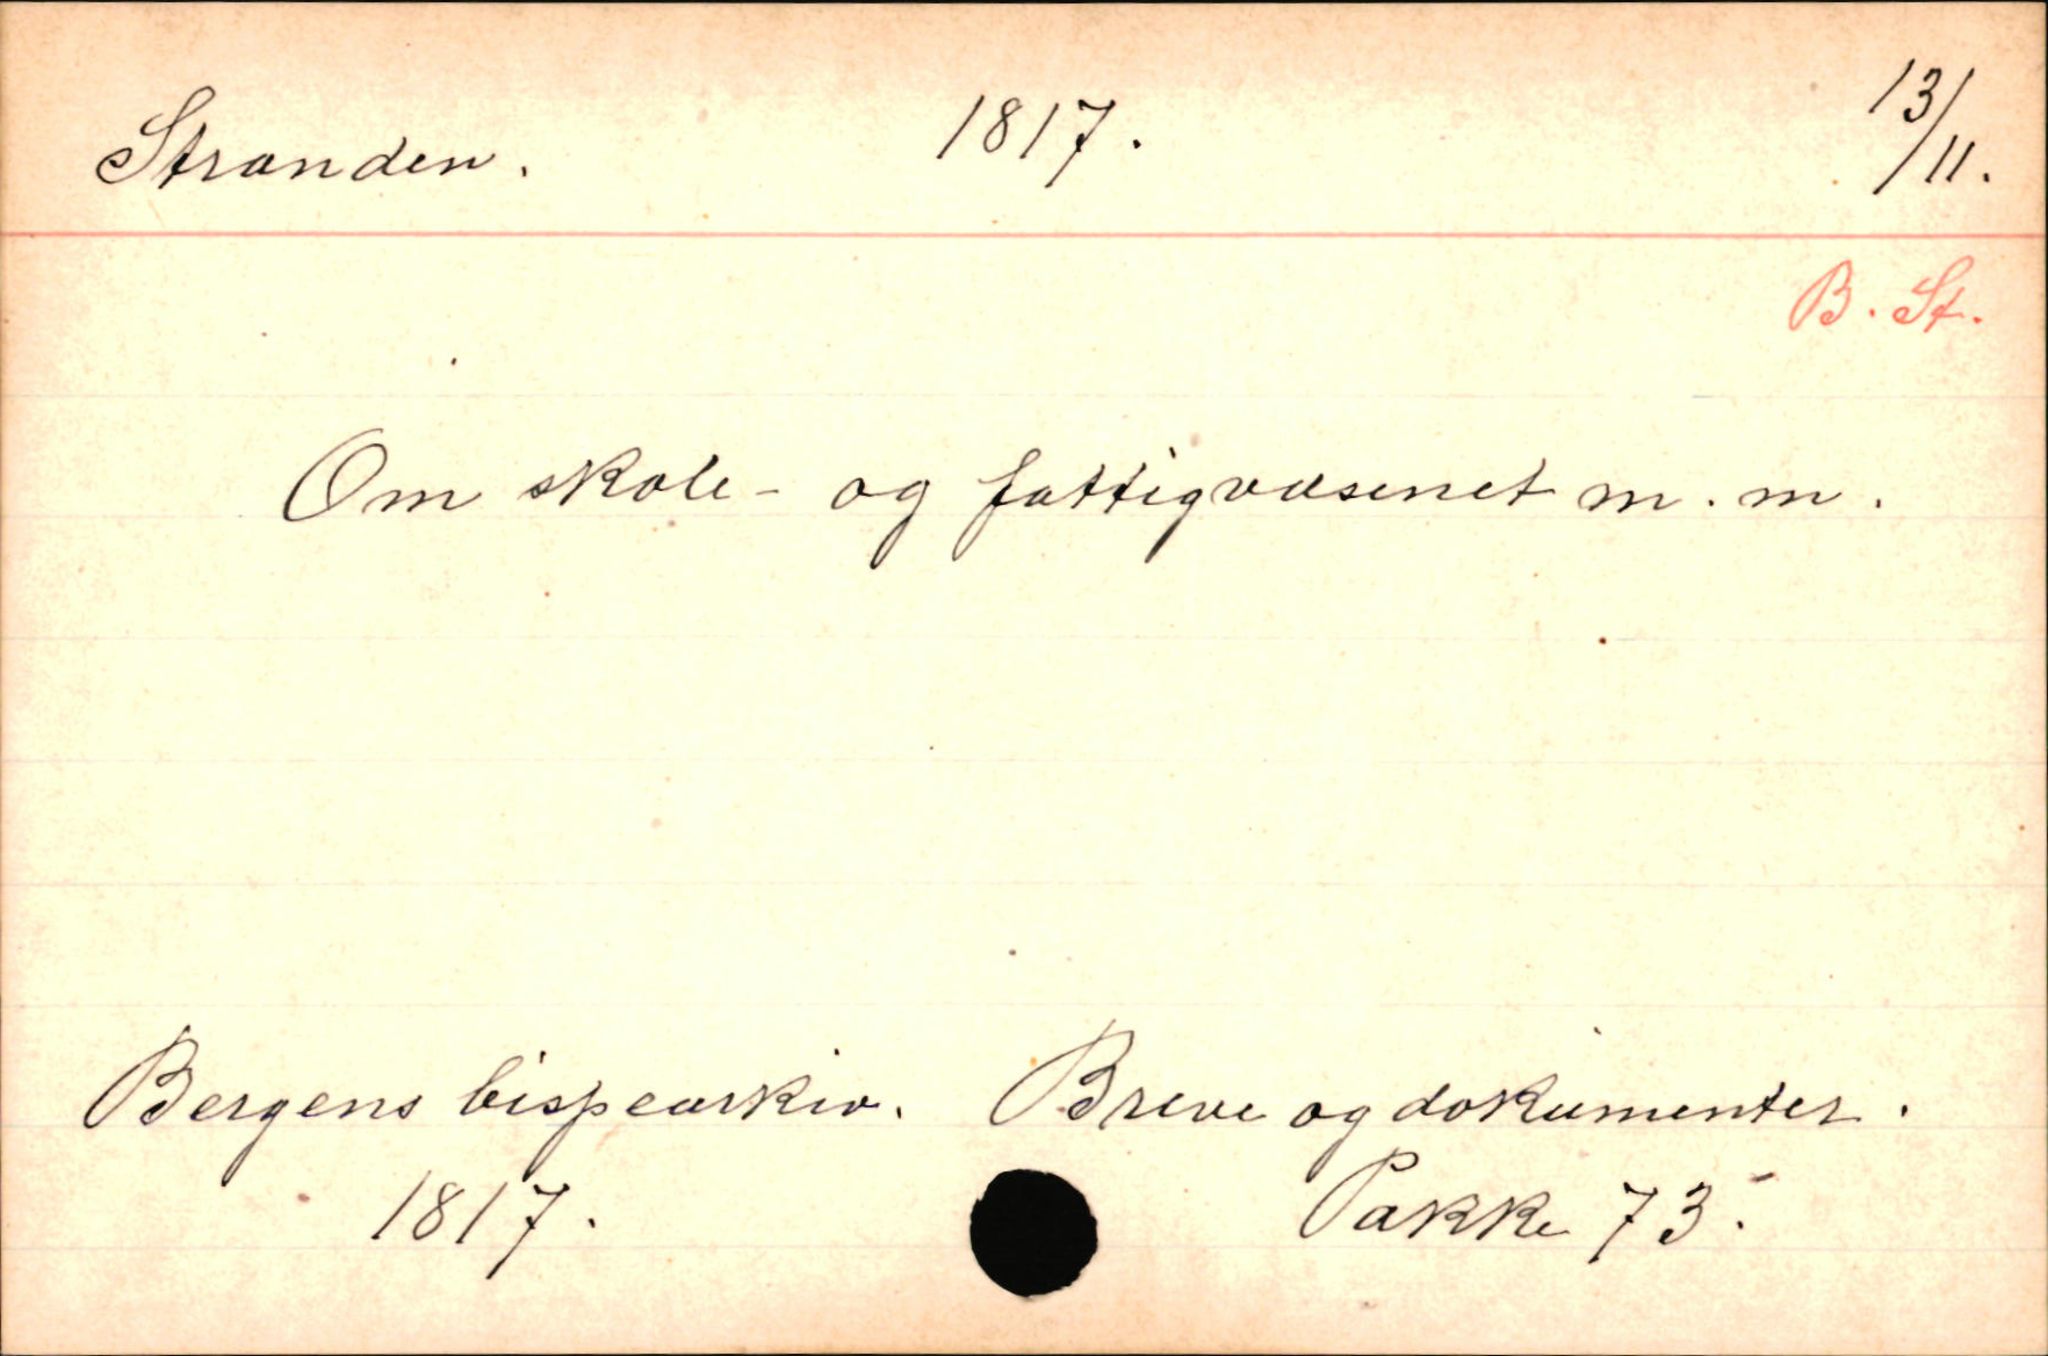 Stranden. 1817. 13/11.
B. St.
Om skole- og fattigvæsenet m. m.
Bergens bispearkiv. Breve og dokumenter.
1817. Pakke 73.